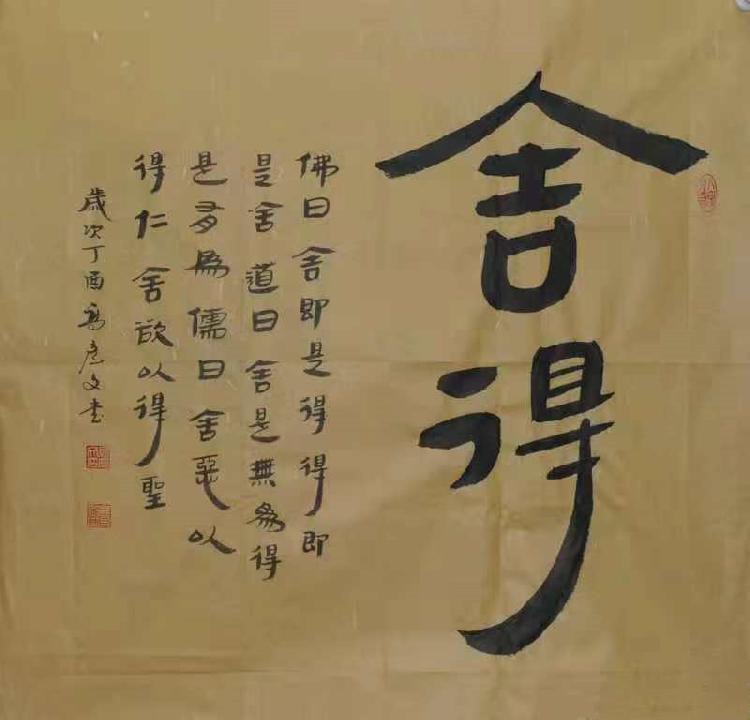 舍得
佛曰舍即是得得即
是舍道曰舍是無為得
是有為儒曰舍惡以
得仁舍欲以得聖
歲次丁酉